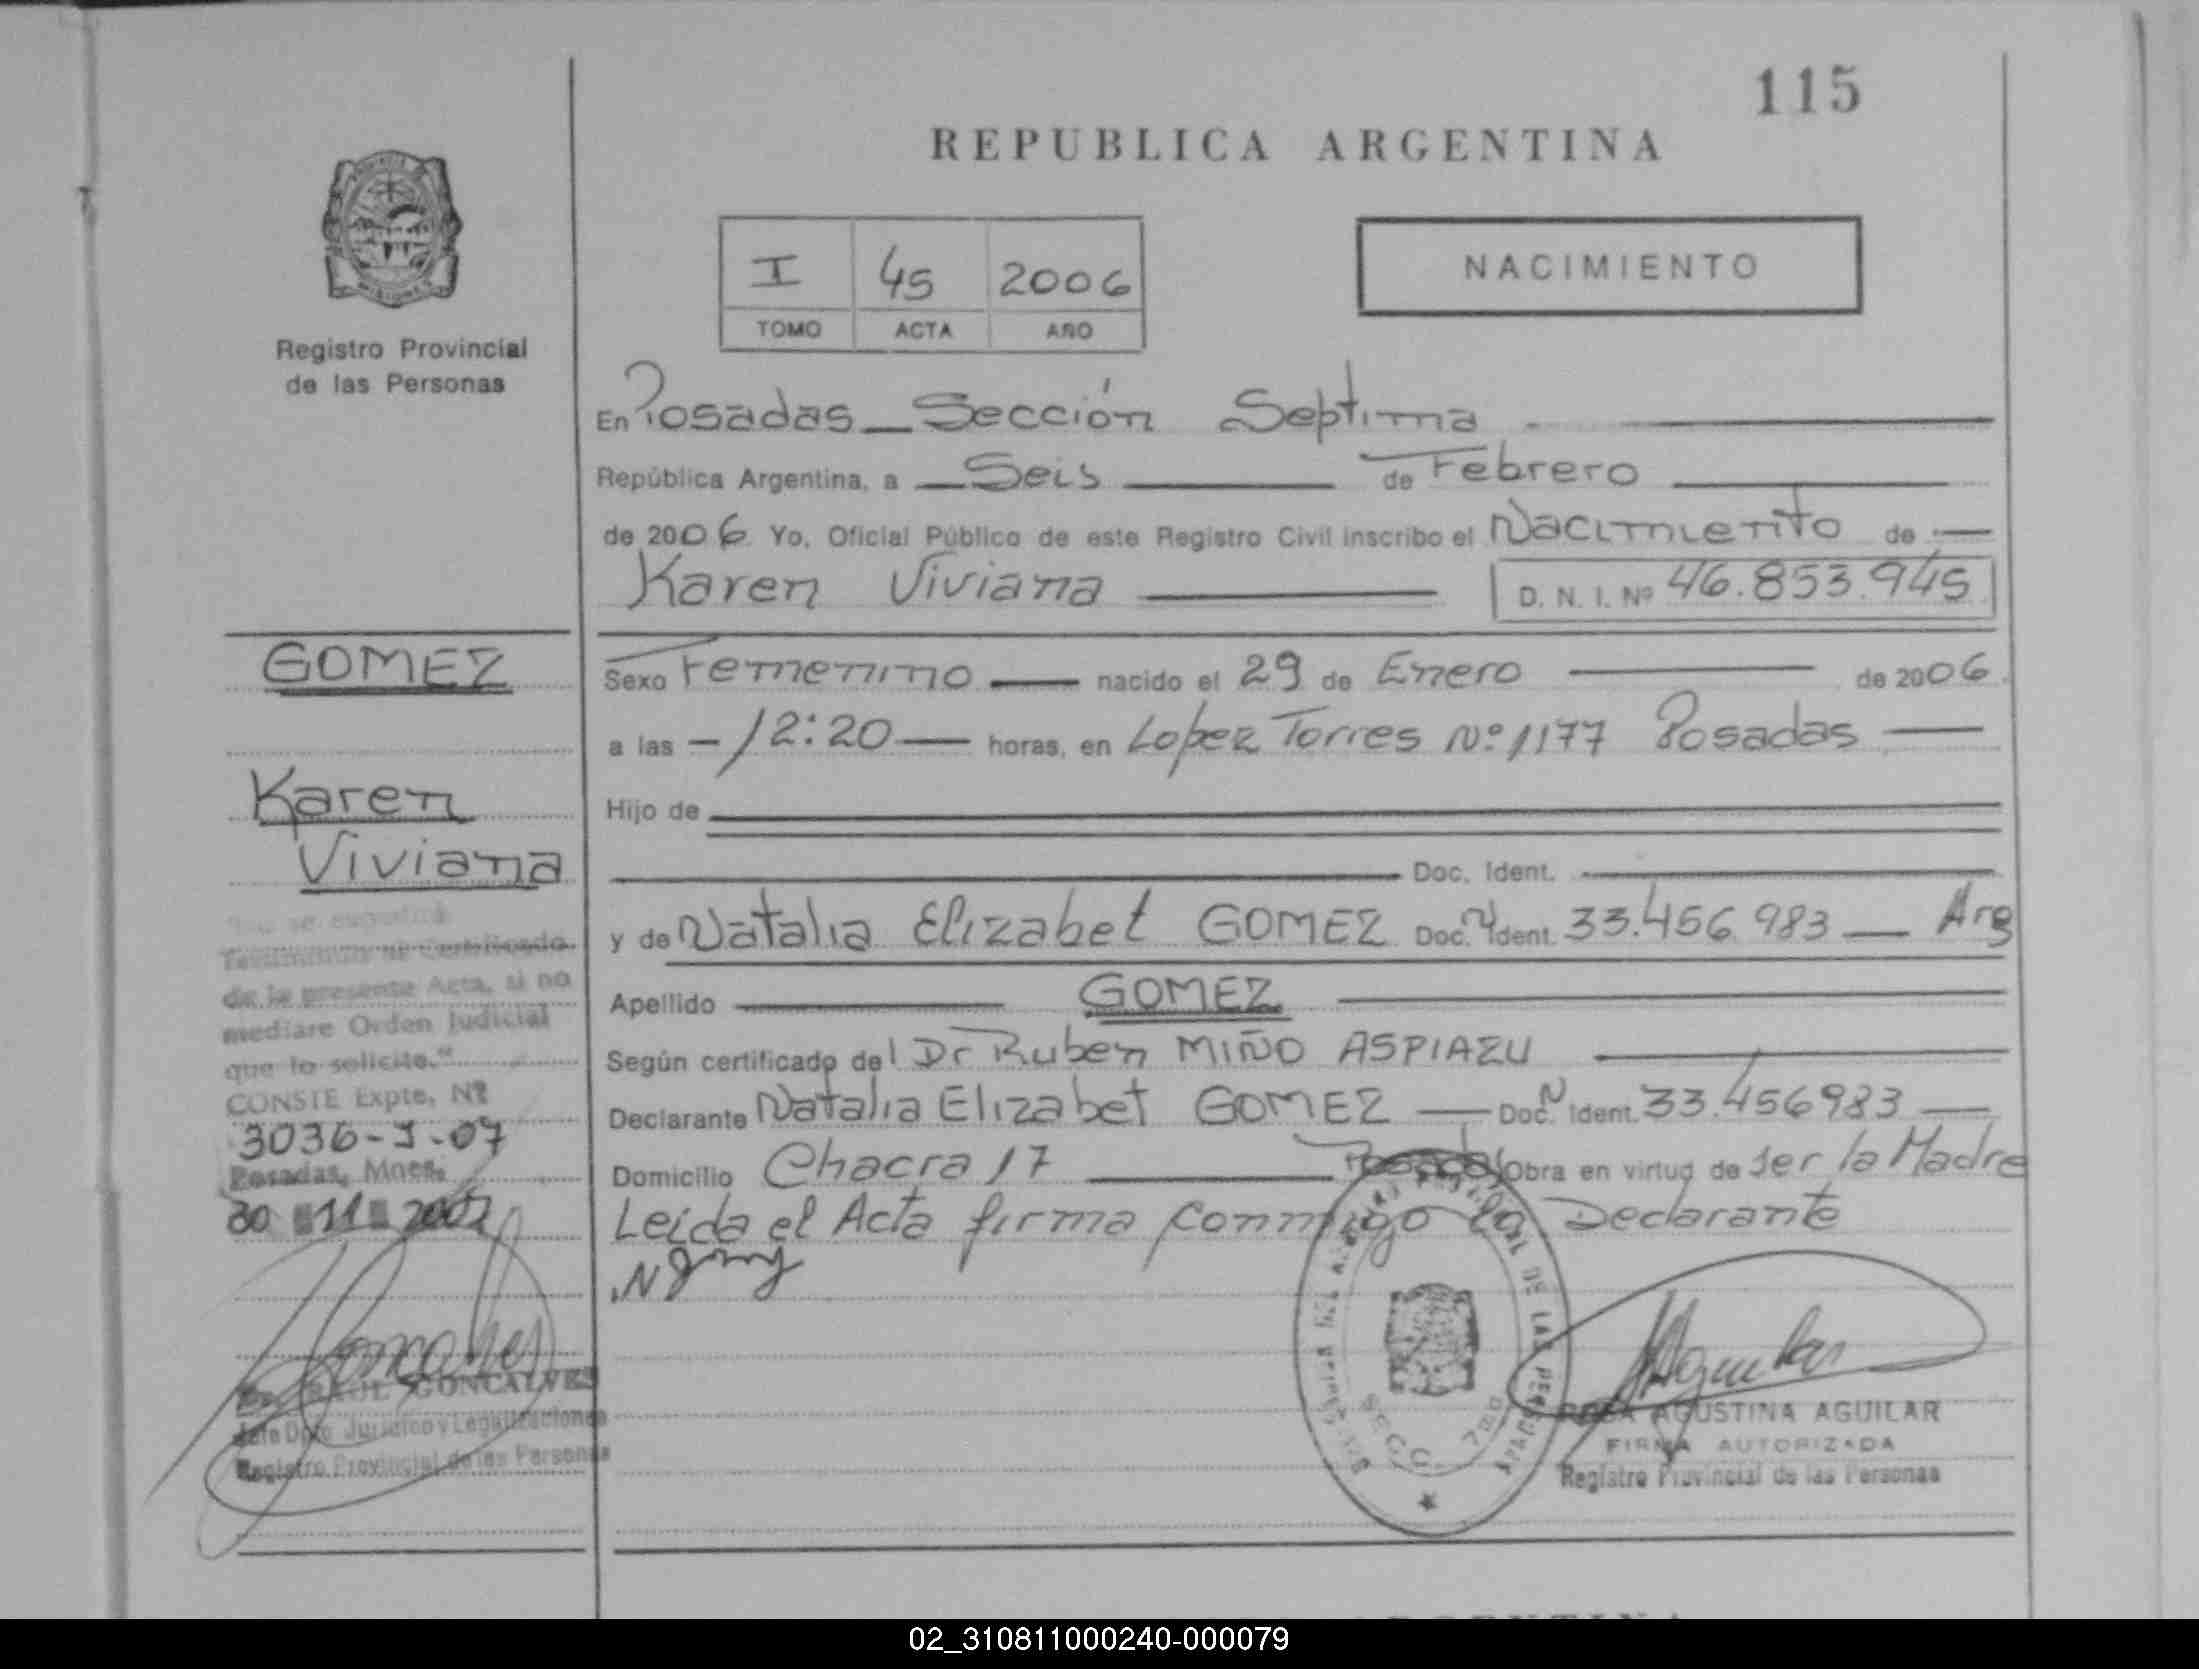 115
REPUBLICA ARGENTINA
I 45 2006
TOMO ACTA AÑO
NACIMIENTO
Registro Provincial
de las Personas
En Posadas Sección Septima
República Argentina, a Seis de Febrero
de 2006 Yo, Oficial Público de este Registro Civil inscribo el Nacimiento de
Karen Viviana D. N. I. Nº 46.853.945
GOMEZ
Sexo Femenino nacido el 29 de Enero de 2006
a las 12:20 horas, en Lopez Torres Nº 1177 Posadas
Karen
Viviana
Hijo de
Doc. Ident.
y de Natalia Elizabet GOMEZ Doc. N Ident. 33.456.983 Arg
Apellido GOMEZ
Según certificado del Dr Ruben MIÑO ASPIAZU
Declarante Natalia Elizabet GOMEZ Doc. N Ident. 33.456983
Domicilio Chacra 17 Obra en virtud de ser la Madre
Leida el Acta firma conmigo la Declarante
Testimonio ni Certificado
de la presente Acta, si no
mediare Orden Judicial
que lo solicite."
CONSTE Expte. Nº
3036-J-07
Posadas, Mnes.
30 11 2007
RAUL GONCALVES
Jefe Dpto. Jurídico y Legalizaciones
Registro Provincial de las Personas
SECC. 7ma
ROSA AGUSTINA AGUILAR
FIRMA AUTORIZADA
Registro Provincial de las Personas
02_310811000240-000079